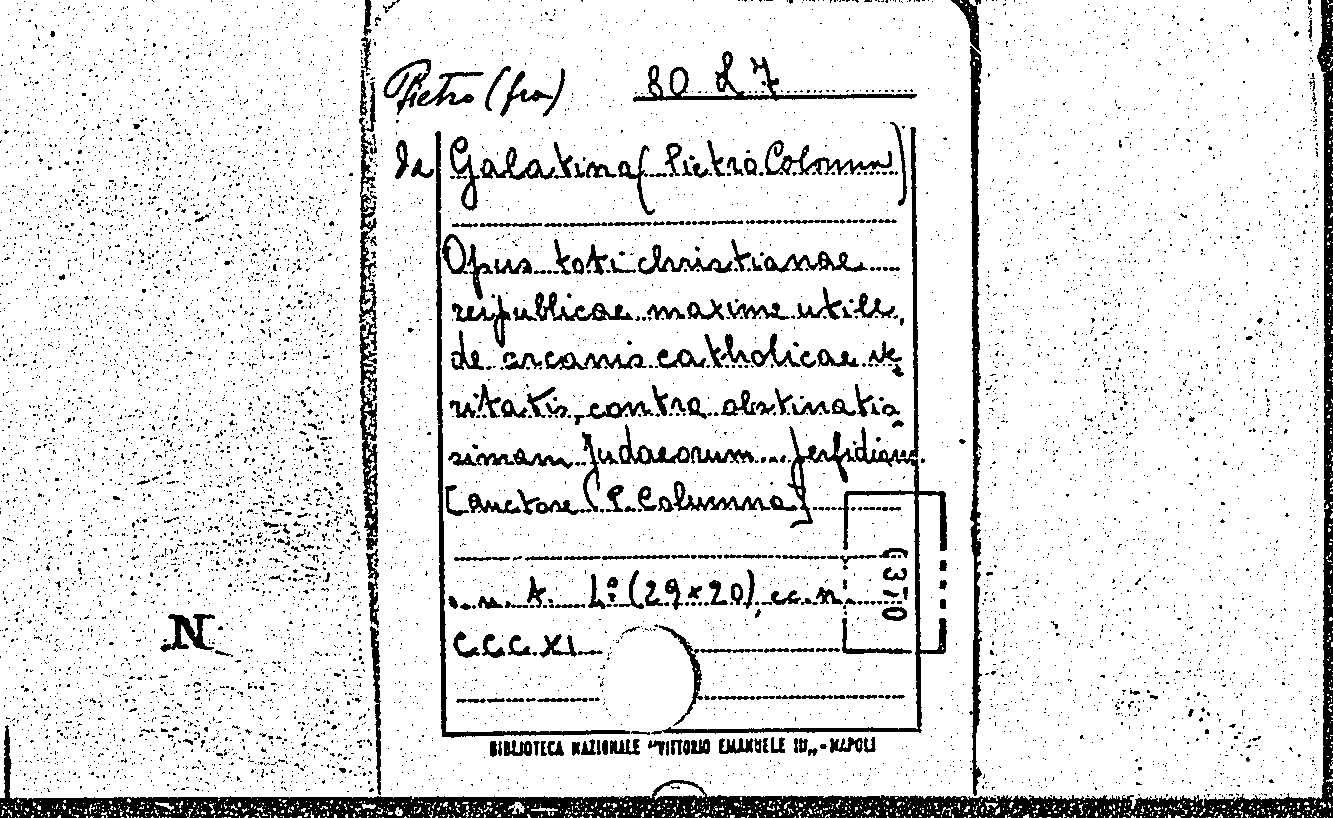 Pietro (fra) 80 L 7
da Galatina (Pietro Colonna)
Opus toti christianae
reipublicae maxime utile,
de arcanis catholicae ve
ritatis, contra obstinatis
simam Judaeorum... perfidiam.
[auctore (P. Columna)
L.º (29x20), cc. n.
CCCXI
(370
N
BIBLIOTECA NAZIONALE "VITTORIO EMANUELE III„ - NAPOLI